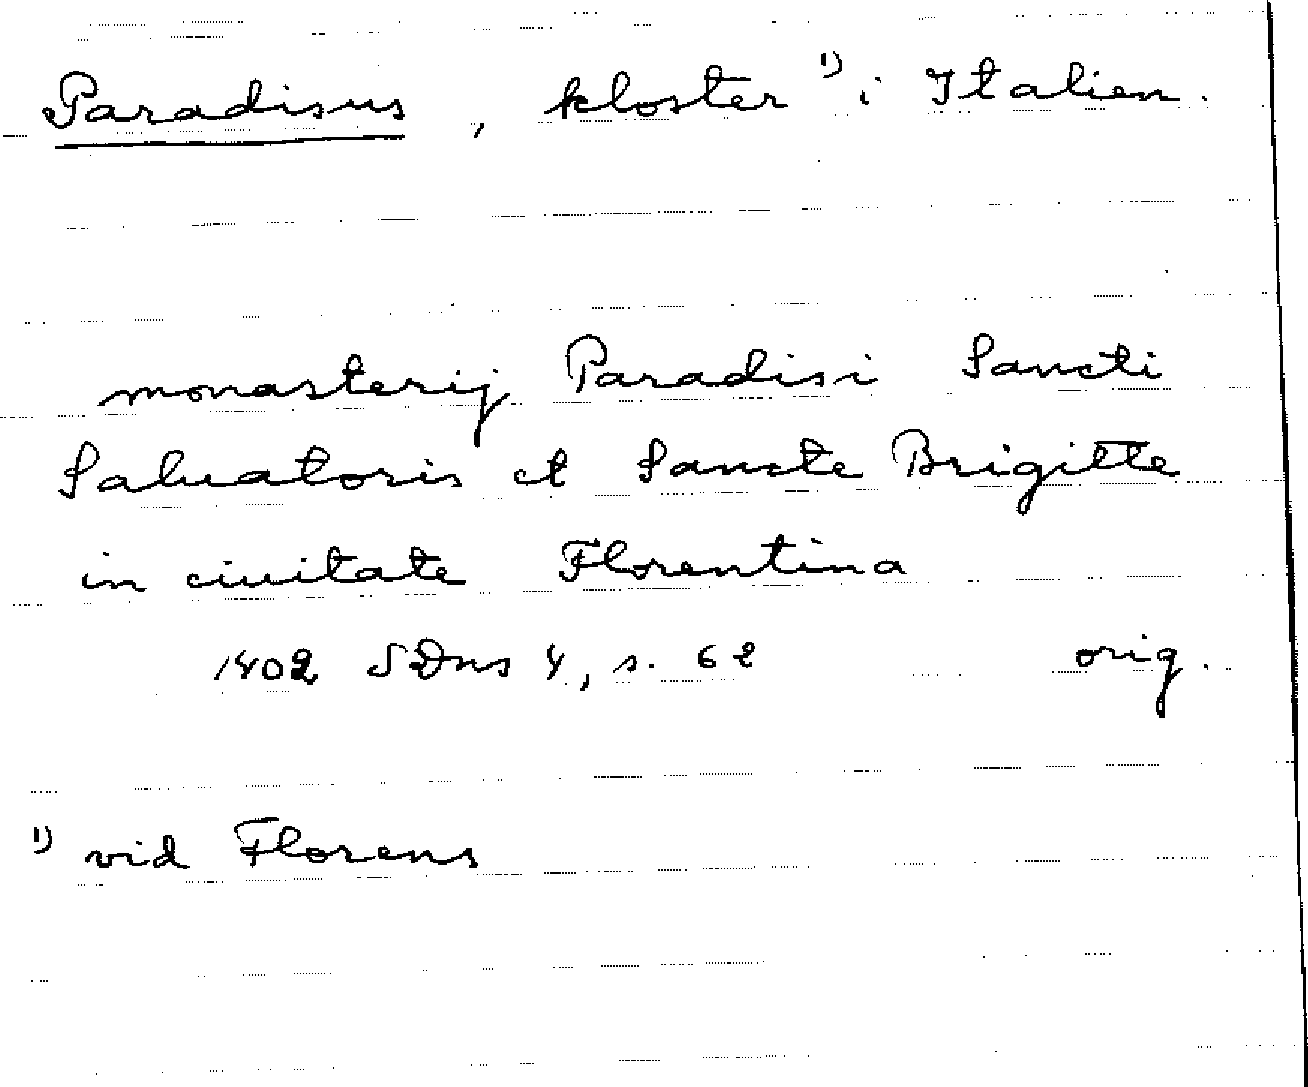 Paradisus, kloster 1) i Italien.
monasterij Paradisi Sancti
Saluatoris et Sancte Brigitte
in ciuitate Florentina
1402 SDns 4, s. 62 orig.
1) vid Florens